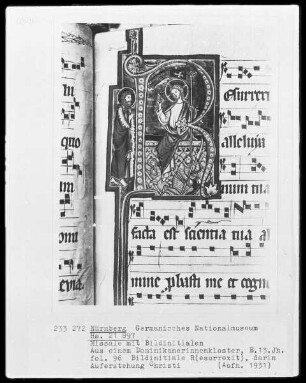 im
quo
num
la.
evia.
esurrexi
alleluia
num tua
facta est scientia tua al
mine plasti me et cogno
233 272 Nürnberg Germanisches Nationalmuseum
Hs. 21 897
Missale mit Bildinitialen
Aus einem Dominikanerinnenkloster, E.13.Jh.
fol. 96 Bildinitiale R(esurrexit), darin
Auferstehung Christi (Aufn. 1931)